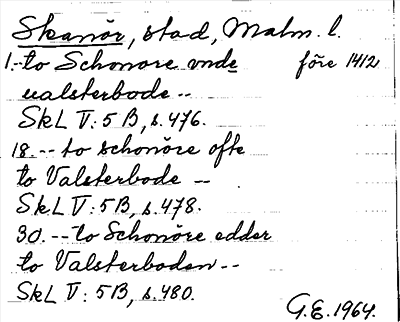 Skanör, stad, Malm. l.
1.-to Schonore vnde före 1412
ualsterbode --
SkL V: 5 B, s. 476.
18. -- to schonöre ofte
to Valsterbode --
SkL V: 5 B, s. 478.
30. -- to Schonöre edder
to Valsterboden --
SkL V: 5 B, s. 480.
G.E. 1964.